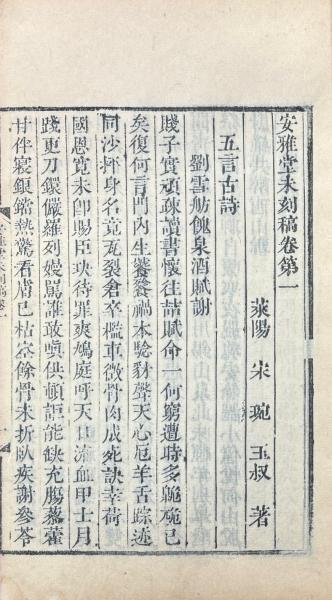 安雅堂未刻稿卷第一
萊陽 宋琬 玉叔 著
五言古詩
劉雪舫餽泉酒賦謝
賤子實頑疎讀書懷往喆賦命一何窮遭時多臲卼已
矣復何言門內生饕餮禍本驗豺聲天心厄羊舌踪迹
同沙揮身名竟瓦裂倉卒檻車徵骨肉成死訣幸荷
國恩寬未即賜臣玦待罪爽鳩庭呼天口流血甲士月
踐更刀鐶儼羅列嫚罵誰敢嗔供頓詎能缺充腸藜藿
甘伴寢銀鐺熱驚看膚已枯卒餘骨未折臥疾謝參苓